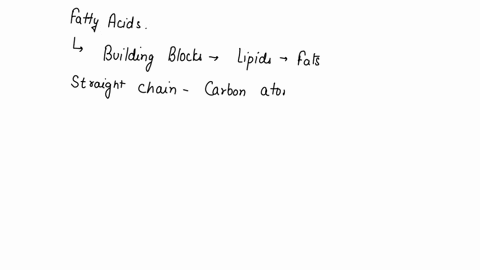 Fatty Acids.
↳ Building Blocks → Lipids → Fats
Straight chain - Carbon ato